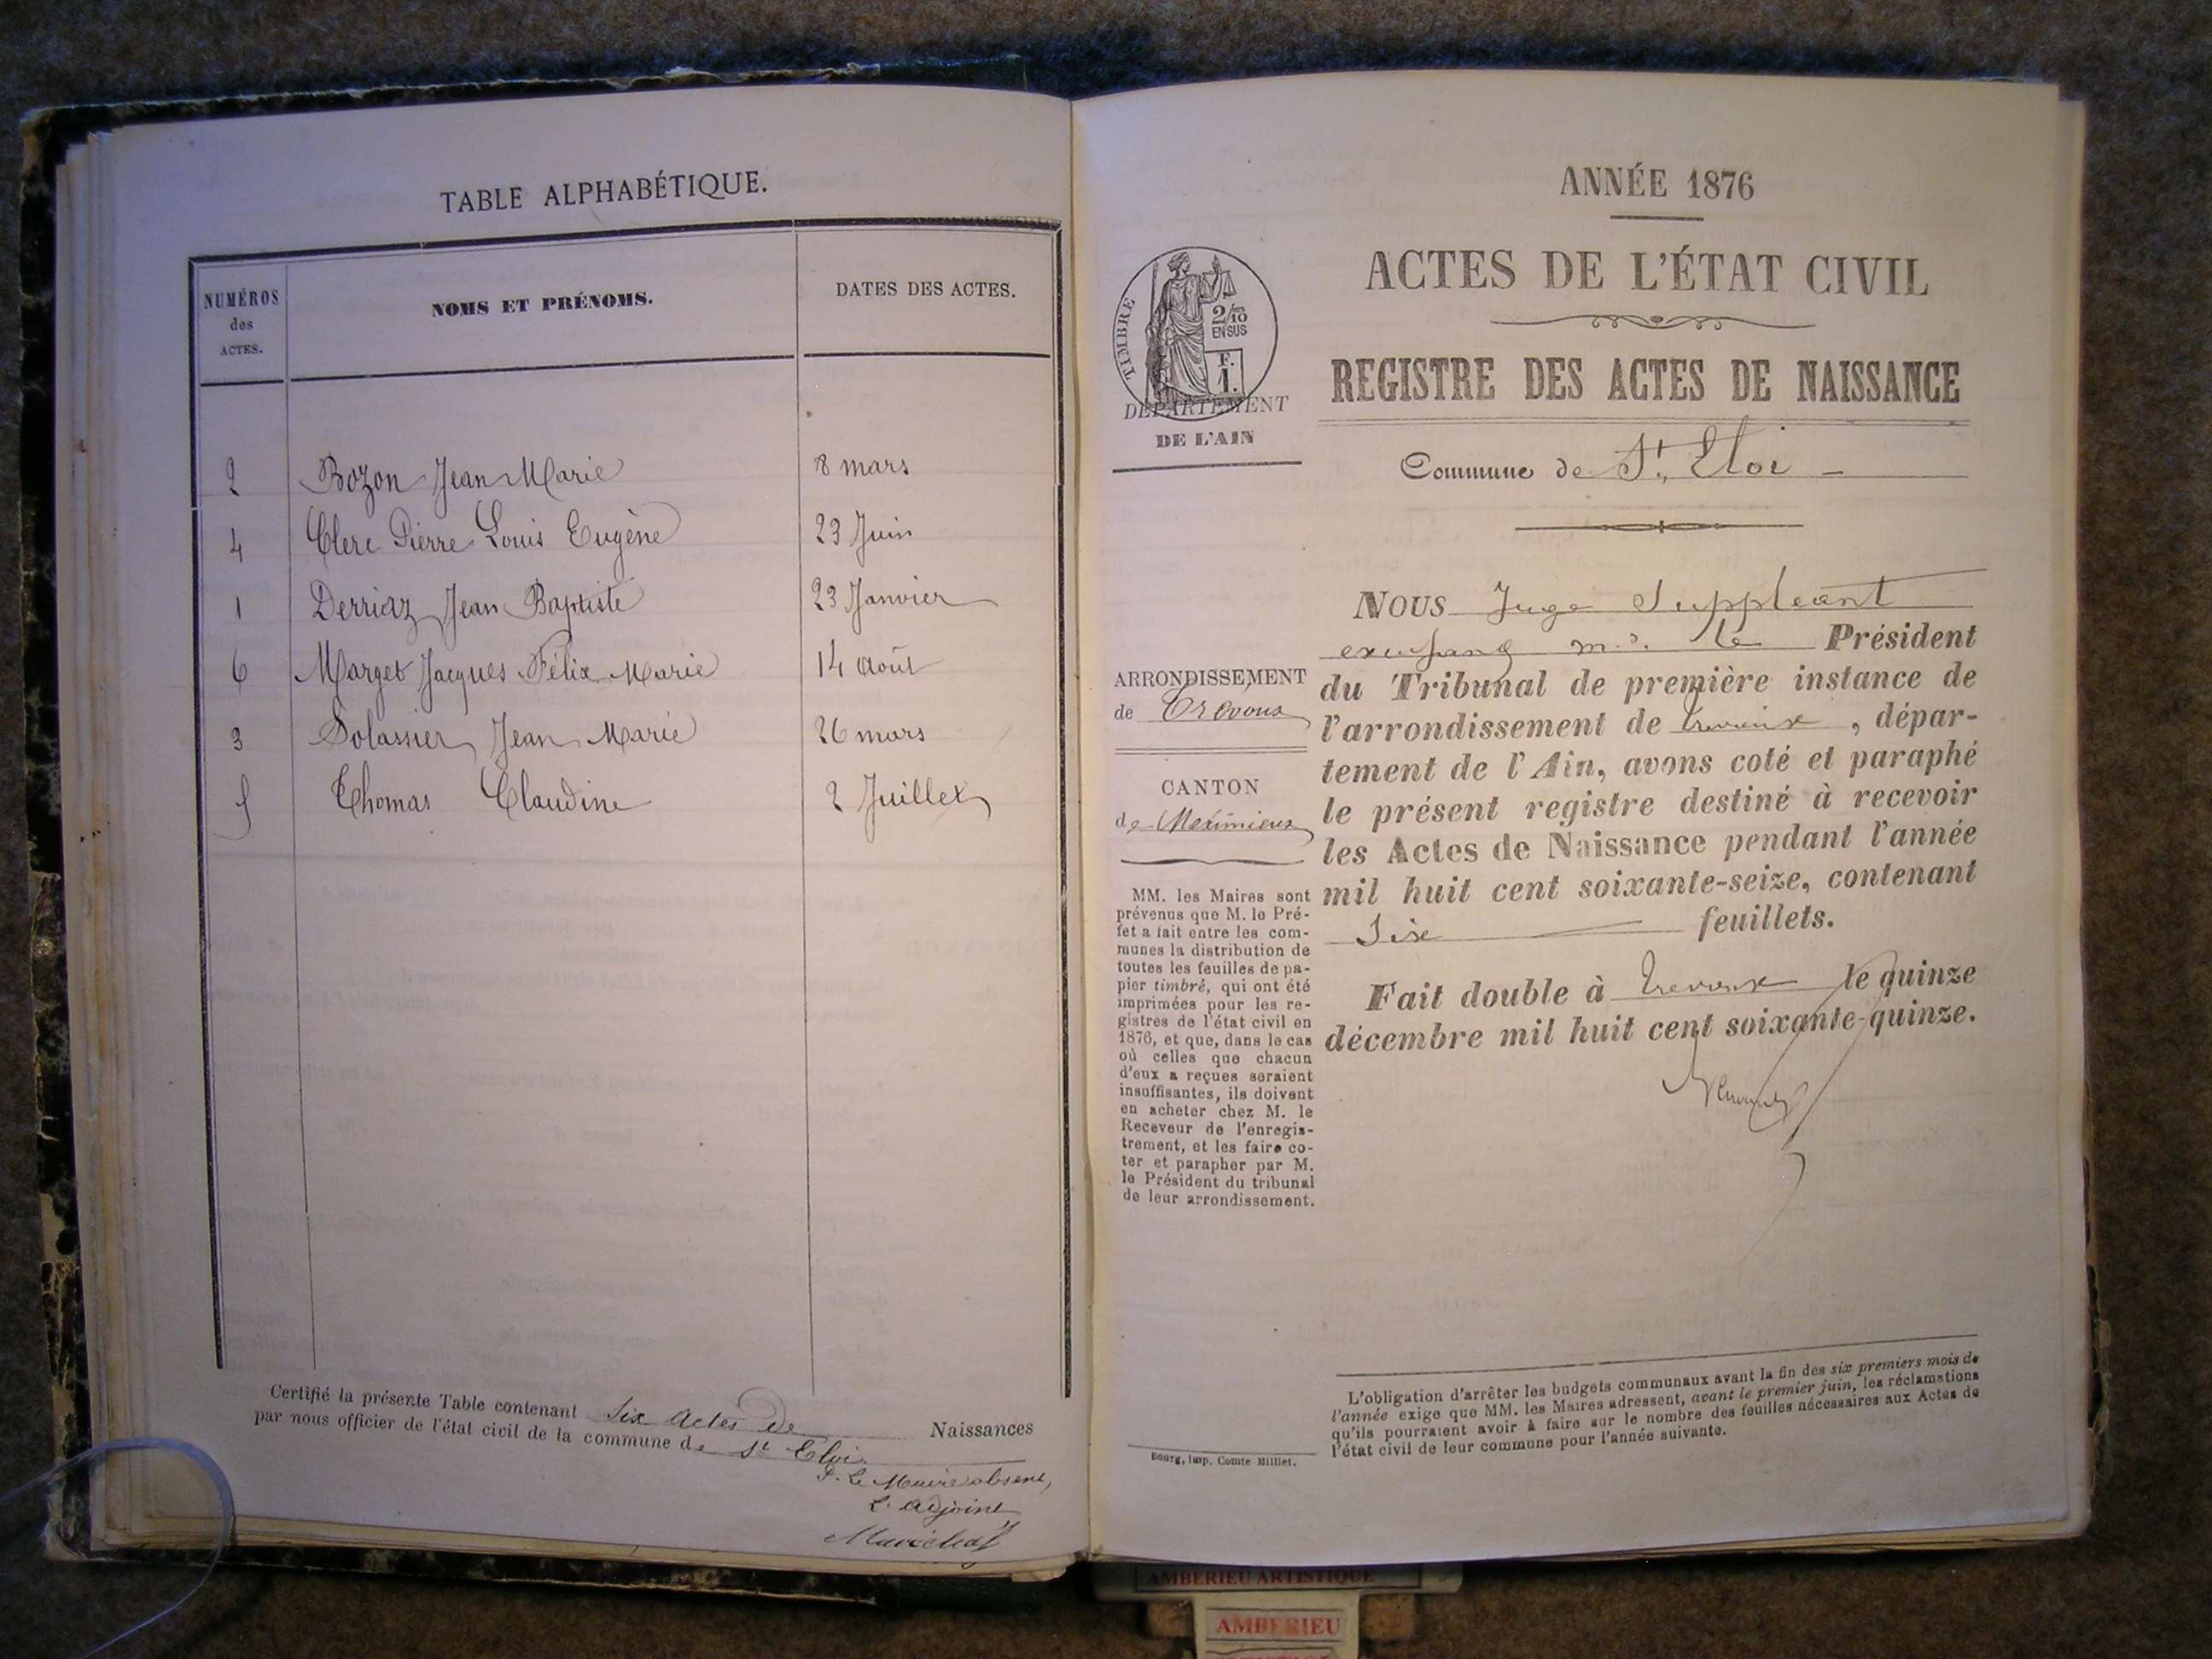 TABLE ALPHABÉTIQUE.
NUMÉROS des ACTES.
NOMS ET PRÉNOMS.
DATES DES ACTES.
2 Bozon Jean Marie 8 mars
4 Clerc Pierre Louis Eugène 23 Juin
1 Derriaz Jean Baptiste 23 Janvier
6 Marget Jacques Félix Marie 14 août
3 Solassier Jean Marie 26 mars
5 Thomas Claudine 2 Juillet
Certifié la présente Table contenant six actes de Naissances
par nous officier de l'état civil de la commune de St Eloi.
P. Le Maire absent,
L'adjoint
Maréchal
ANNÉE 1876
ACTES DE L'ÉTAT CIVIL
REGISTRE DES ACTES DE NAISSANCE
TIMBRE
2/10
EN SUS
F.
1.
DÉPARTEMENT
DE L'AIN
Commune de St. Eloi -
ARRONDISSEMENT
de Trévoux
CANTON
de Meximieux
MM. les Maires sont
prévenus que M. le Pré-
fet a fait entre les com-
munes la distribution de
toutes les feuilles de pa-
pier timbré, qui ont été
imprimées pour les re-
gistres de l'état civil en
1876, et que, dans le cas
où celles que chacun
d'eux a reçues seraient
insuffisantes, ils doivent
en acheter chez M. le
Receveur de l'enregis-
trement, et les faire co-
ter et parapher par M.
le Président du tribunal
de leur arrondissement.
NOUS Juge Suppléant
m. le Président
du Tribunal de première instance de
l'arrondissement de trevoux, dépar-
tement de l'Ain, avons coté et paraphé
le présent registre destiné à recevoir
les Actes de Naissance pendant l'année
mil huit cent soixante-seize, contenant
Six feuillets.
Fait double à trevoux le quinze
décembre mil huit cent soixante-quinze.
L'obligation d'arrêter les budgets communaux avant la fin des six premiers mois de
l'année exige que MM. les Maires adressent, avant le premier juin, les réclamations
qu'ils pourraient avoir à faire sur le nombre des feuilles nécessaires aux Actes de
l'état civil de leur commune pour l'année suivante.
Bourg, imp. Comte Milliet.
AMBERIEU ARTISTIQUE
AMBERIEU